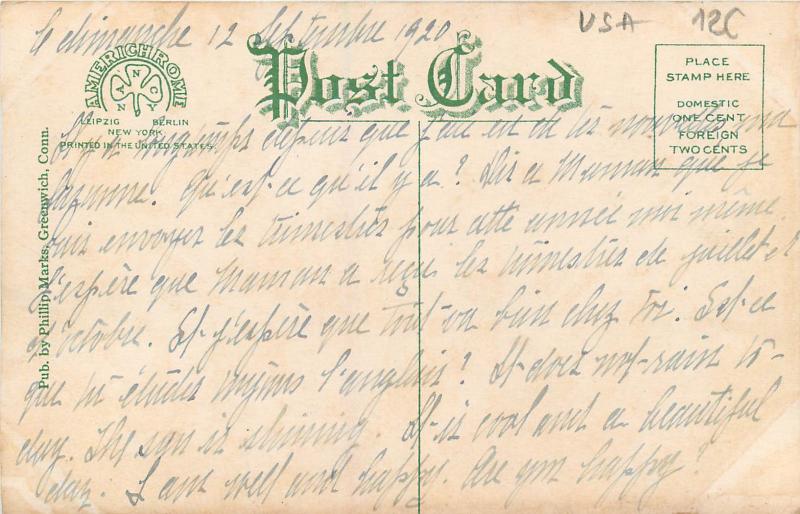 USA 12C
le dimanche 12 Septembre 1920
Post Card
AMERICHROME
A N C N Y
LEIPZIG BERLIN
NEW YORK
PRINTED IN THE UNITED STATES.
PLACE
STAMP HERE
DOMESTIC
ONE CENT
FOREIGN
TWO CENTS
Pub. by Phillip Marks, Greenwich, Conn.
Il y a longtemps depuis que j'ai eu de tes nouvelles ma
Suzanne. Qu'est-ce qu'il y a? Dis a Maman que je
vais envoyer les trimestres pour cette année moi même.
J'espère que Maman a reçu les trimestres de juillet et
d'octobre. Et j'espère que tout va bien chez toi. Est-ce
que tu étudies toujours l'anglais? It does not rain to-
day. The sun is shining. It is cool and a beautiful
day. I am well and happy. Are you happy?